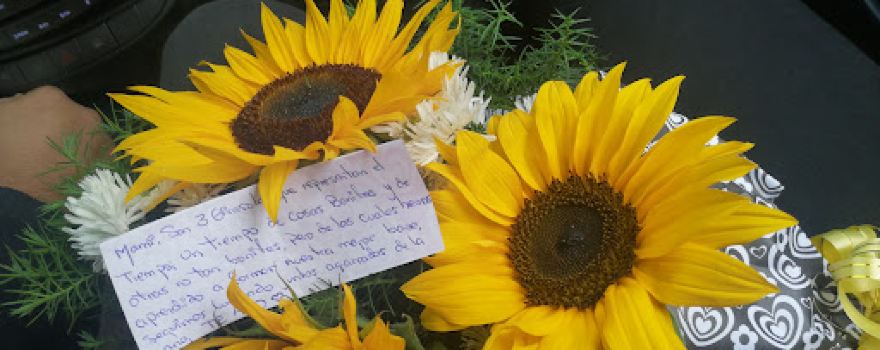 Mami, Son 3 Girasoles que representan el
tiempo. Un tiempo de cosas Bonitas y de
otras no tan bonitas, pero de las cuales hemos
aprendido a formar nuestra mejor base,
Seguimos juntos agarrados de la